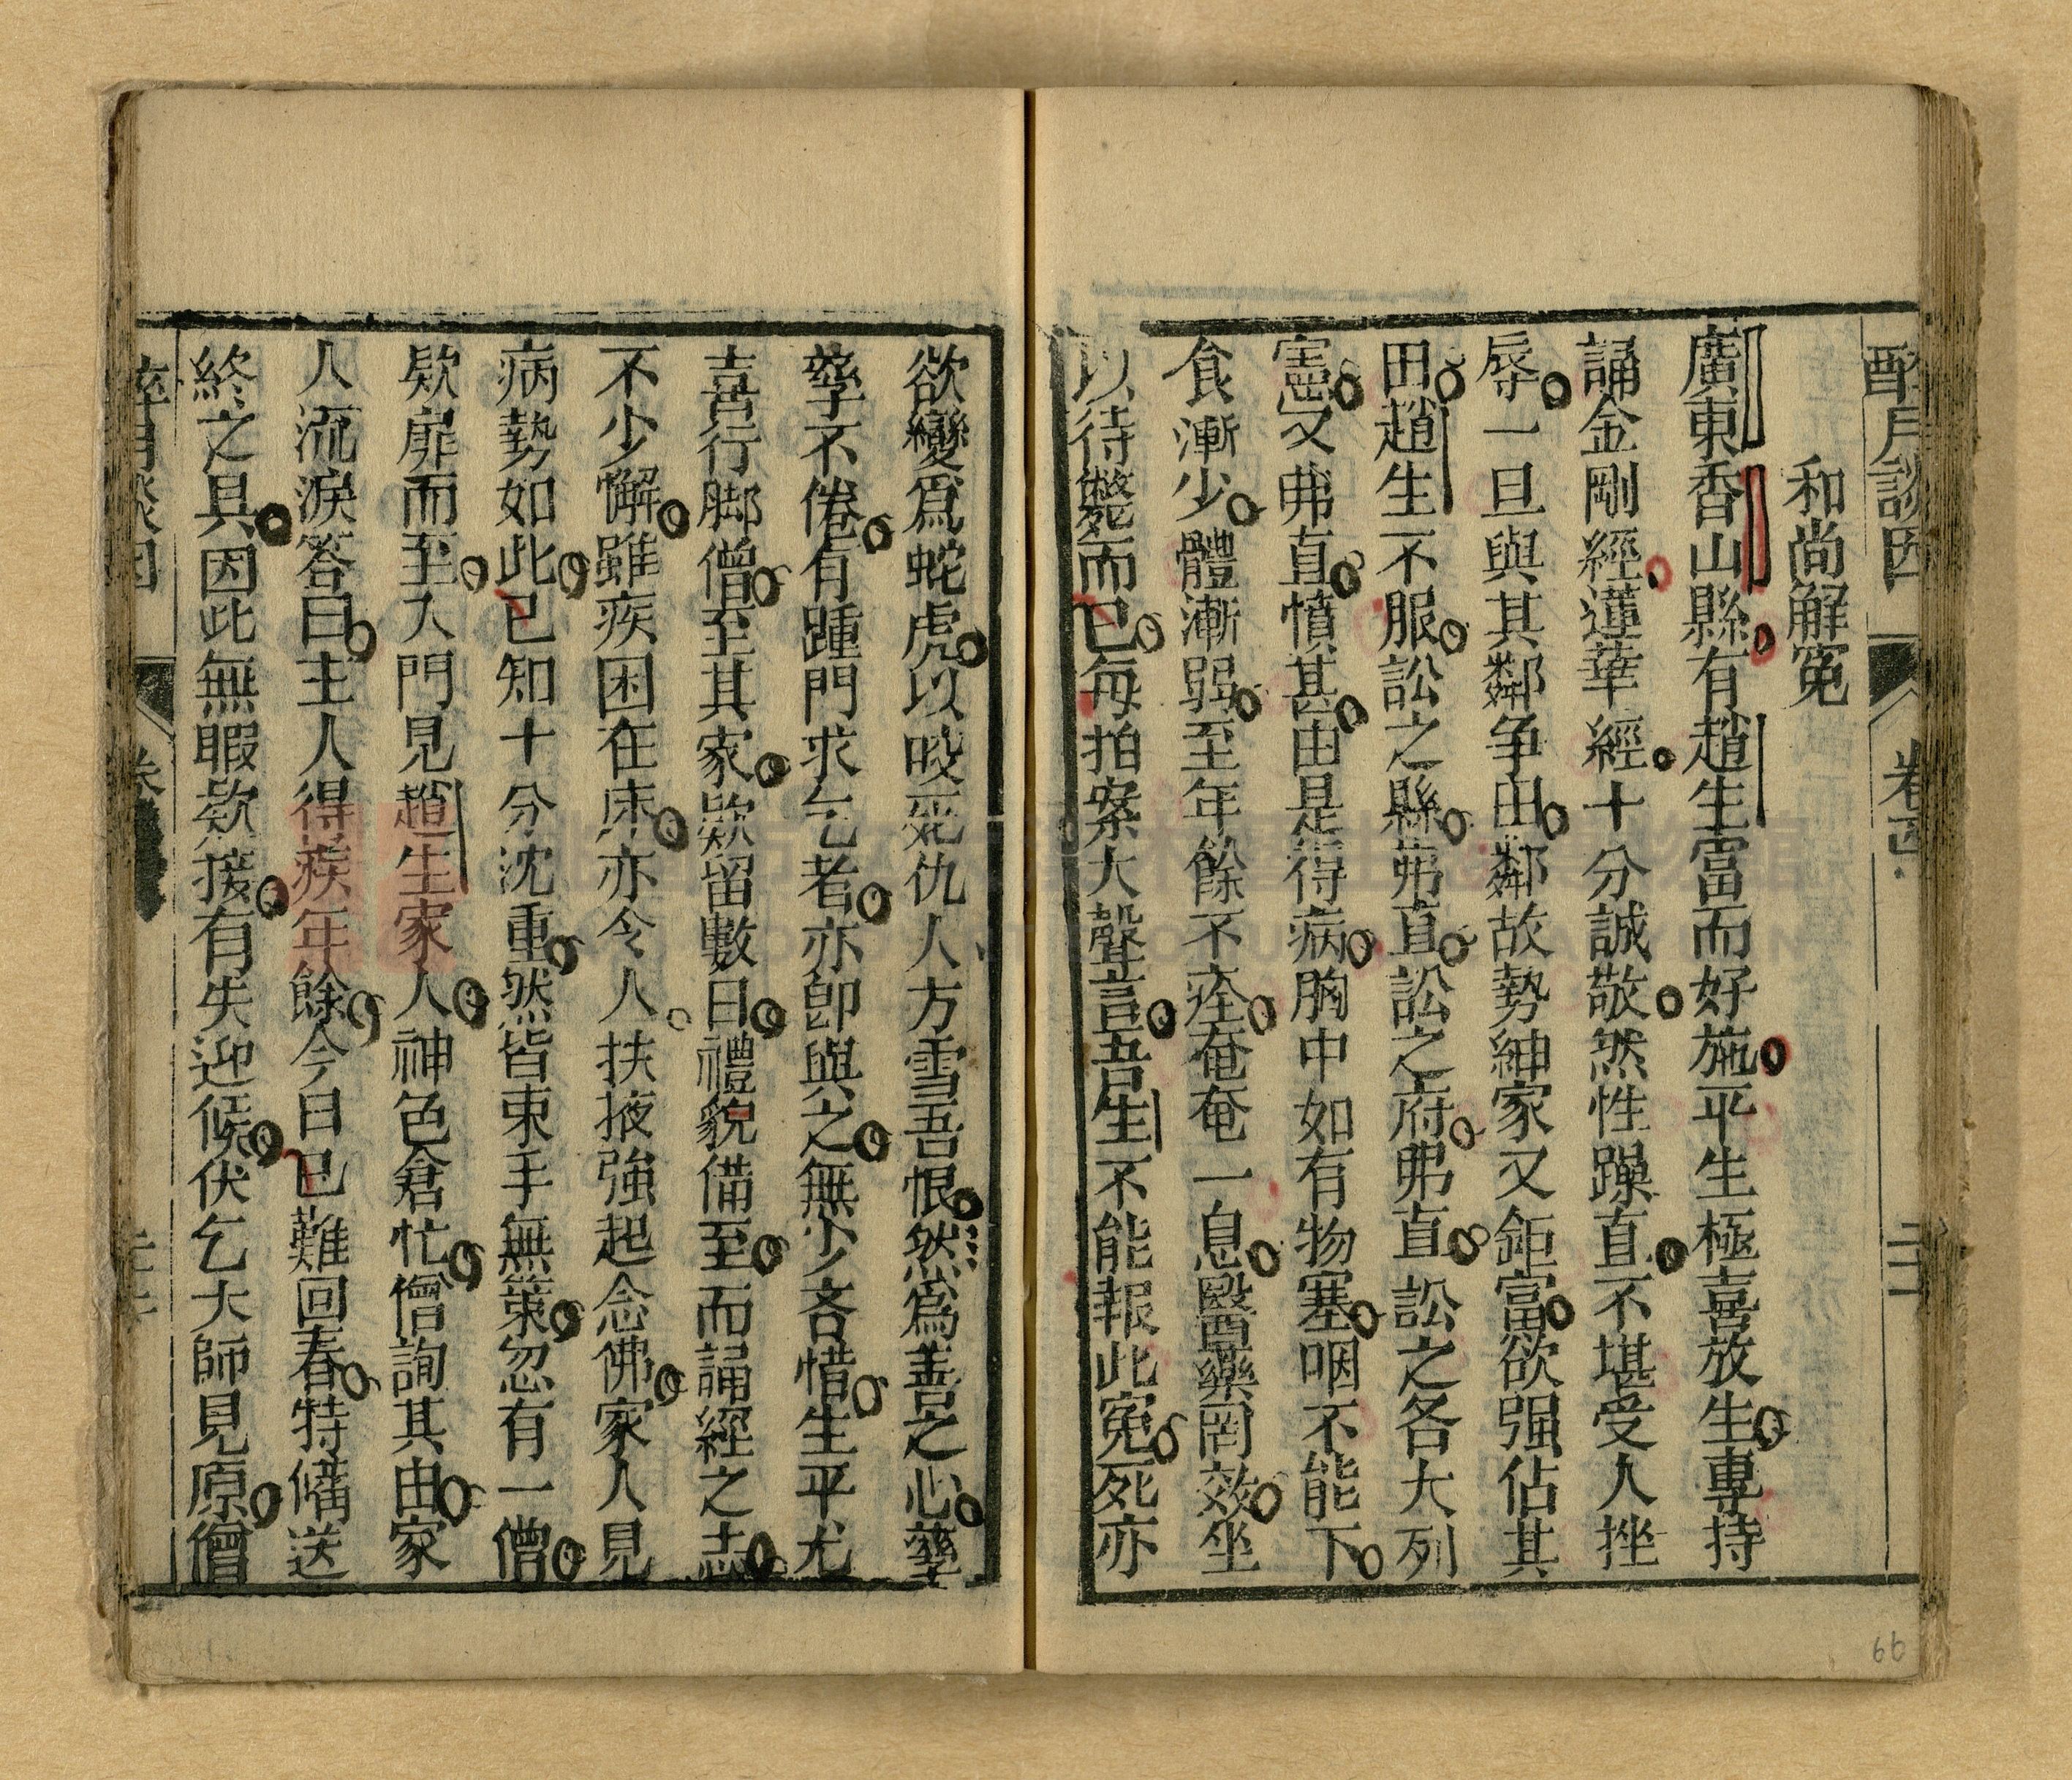 和尚解冤
廣東香山縣有趙生富而好施平生極喜放生專持
誦金剛經蓮華經十分誠敬然性躁直不堪受人挫
辱一旦與其鄰争由鄰故勢紳家又鉅富欲强佔其
田趙生不服訟之縣弗直訟之府弗直訟之各大列
憲又弗直憤甚由是得病胸中如有物塞咽不能下
食漸少體漸弱至年餘不痊奄奄一息醫藥罔效坐
以待斃而已每拍案大聲言吾生不能報此冤死亦
欲變爲蛇虎以咬死仇人方雪吾恨然爲善之心孳
孳不倦有踵門求乞者亦卽與之無少吝惜生平尤
喜行脚僧至其家欵留數日禮貌備至而誦經之志
不少懈雖疾困在床亦令人扶掖強起念佛家人見
病勢如此已知十分沈重然皆束手無策忽有一僧
欵扉而至入門見趙生家人神色倉忙僧詢其由家
人流淚答曰主人得疾年餘今日已難回春特備送
終之具因此無暇欵接有失迎候伏乞大師見原僧
卷
66